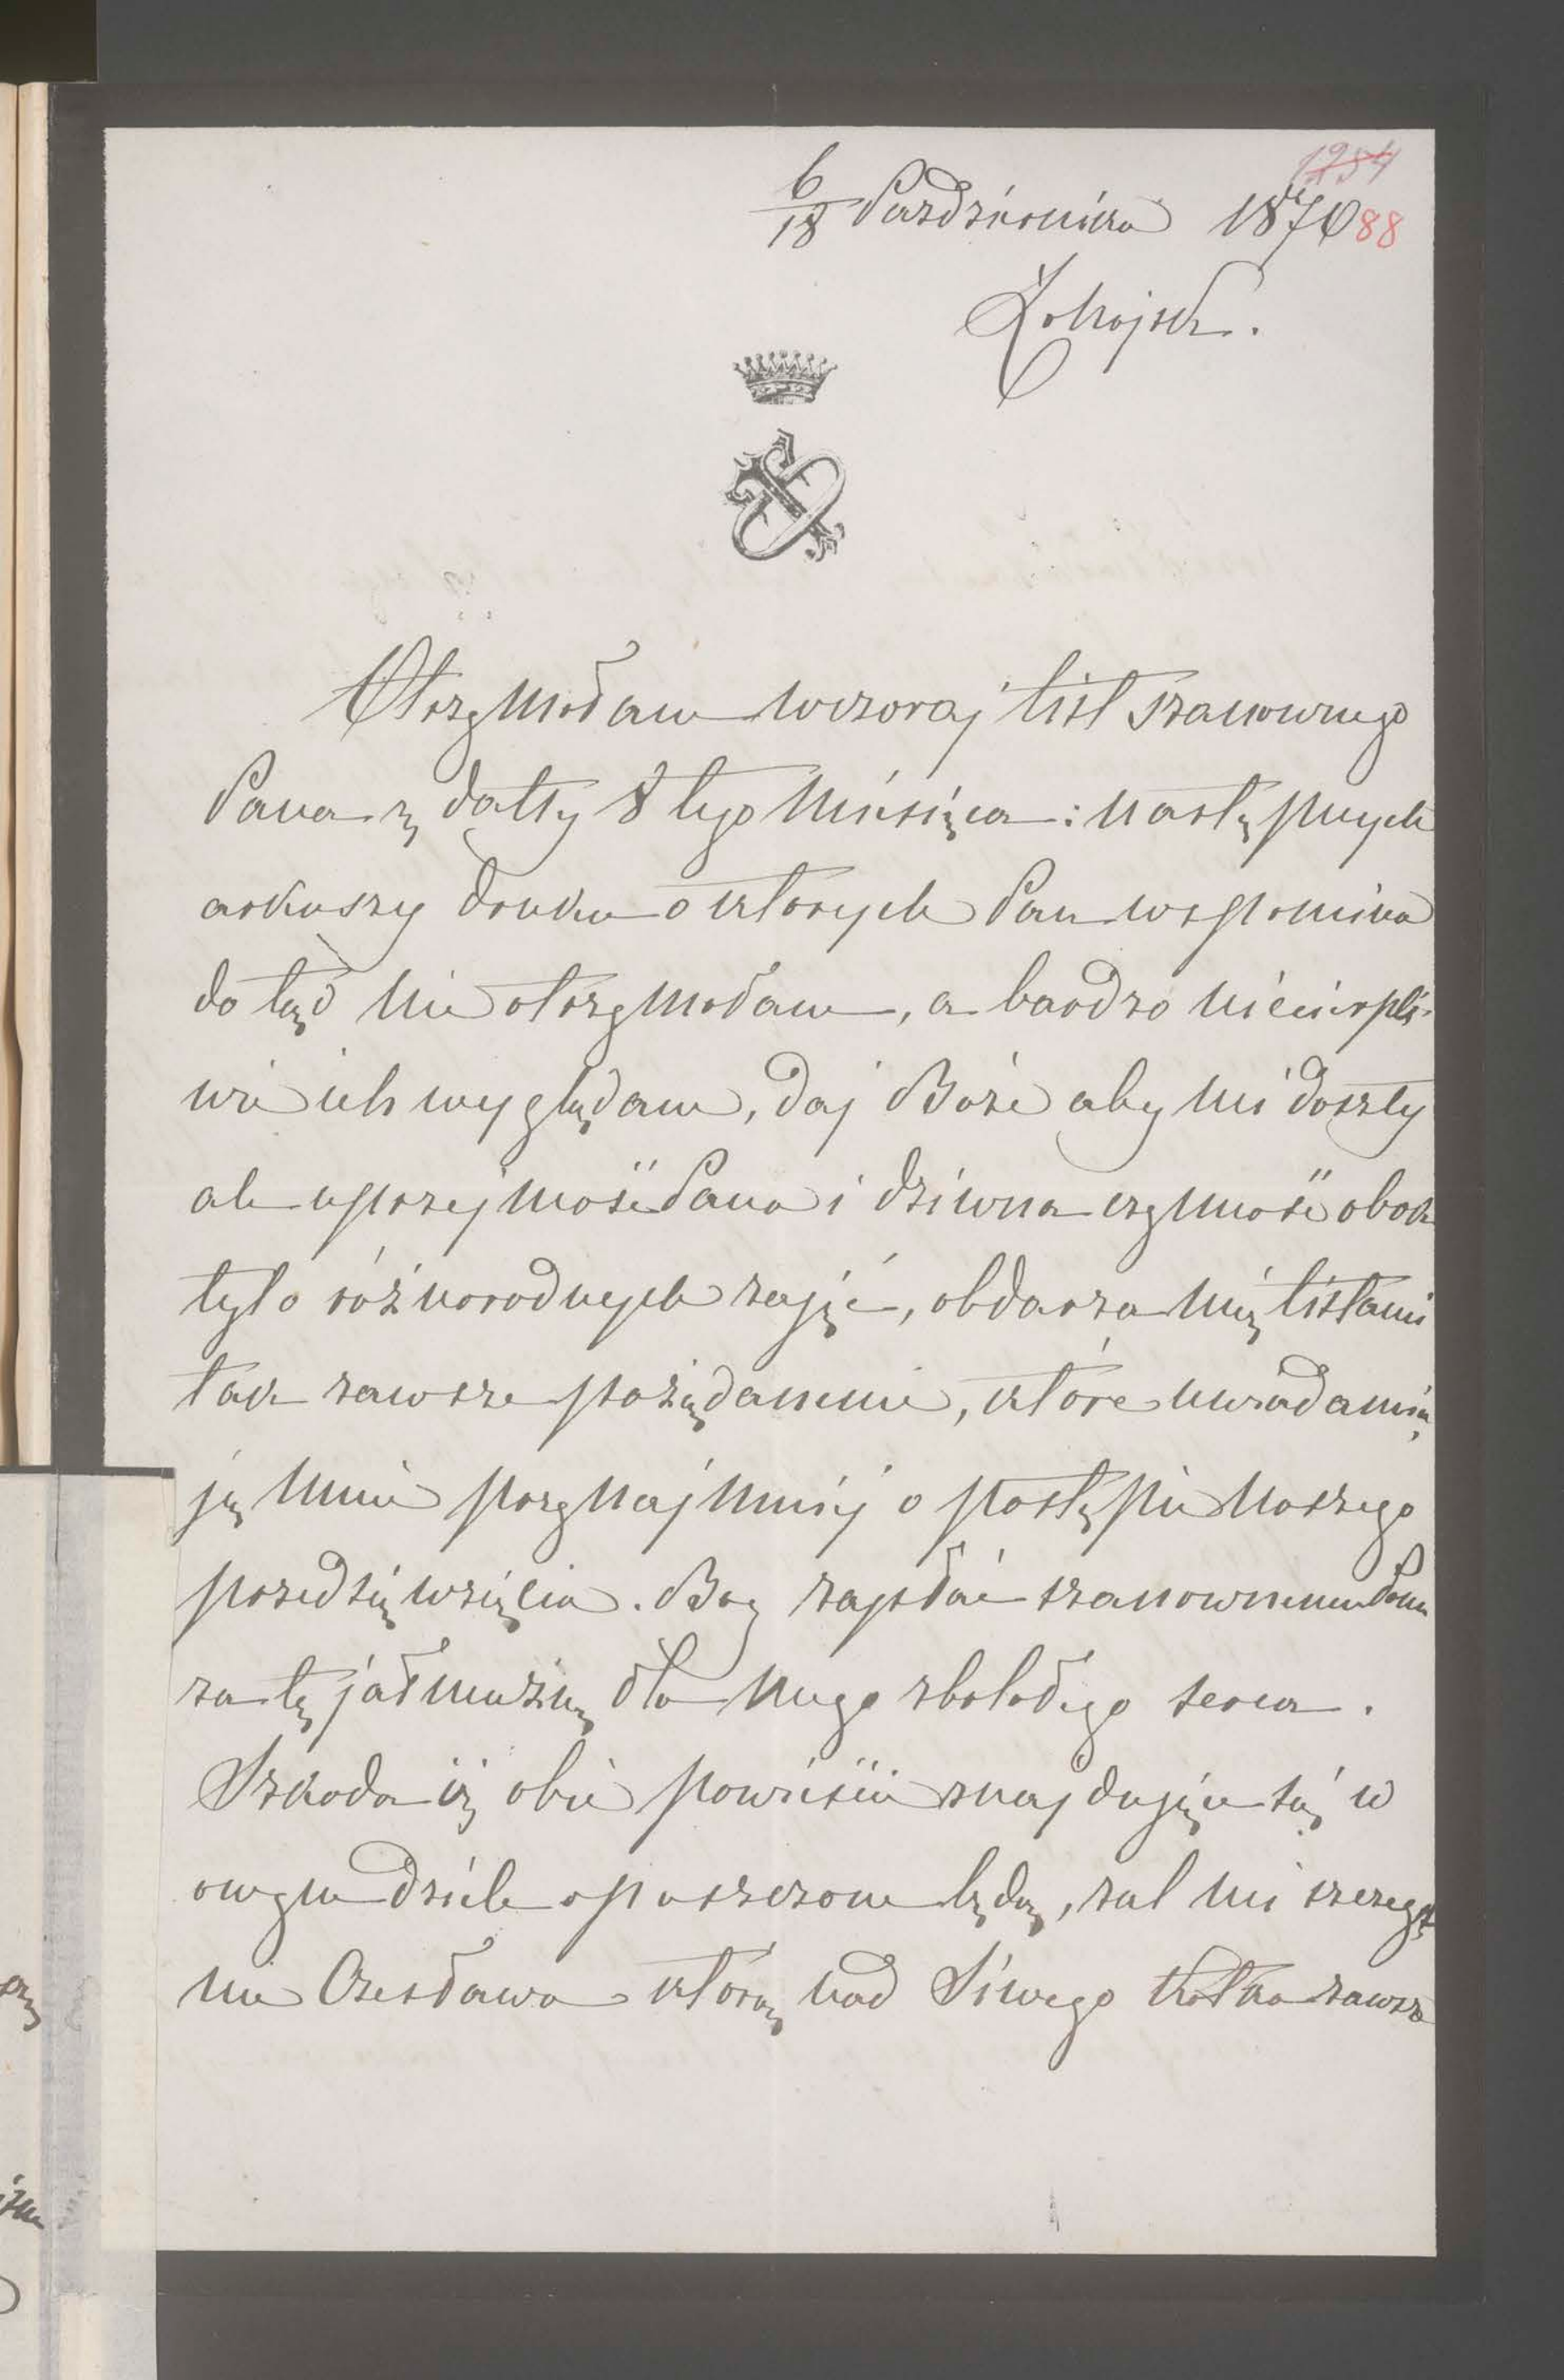 1254
6/18 Pazdziernika 1870 88
Żohojsk.
Otrzymałam wczoraj list szanownego
Pana z datty 8 tego Miesiąca: następnych
arkuszy druku o których Pan wspomina
do tąd nie otrzymałam, a bardzo niecierpli-
wie ich wyglądam, daj Boże aby mi doszły
ale uprzejmość Pana i dziwna czynność obok
tylo różnorodnych zajęć, obdarza mię listami
tak zawsze pożądanemi, które uwiadamia
ją mnie przynajmniej o postępie naszego
przedsięwzięcia. Bóg zapłać szanownemu Panu
za tę jałmużnę dla mego zbolałego serca.
Szkoda iż obie powieści znajdujące się w
owym dziele opuszczone będą, żal mi szczegól
nie Czesława którą nad Siwego Kotka zawsze